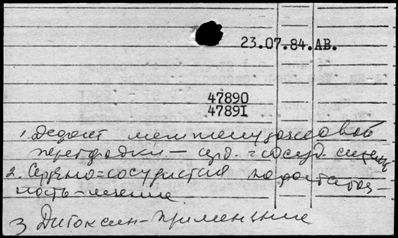 23.07.84.АВ.
47890
47891
1. Дефект межжелудочковой
перегородки – серд.=сосуд.
2. Сердечно=сосудистая недостаточ-
ность – лечение
3. Дигоксин – применение